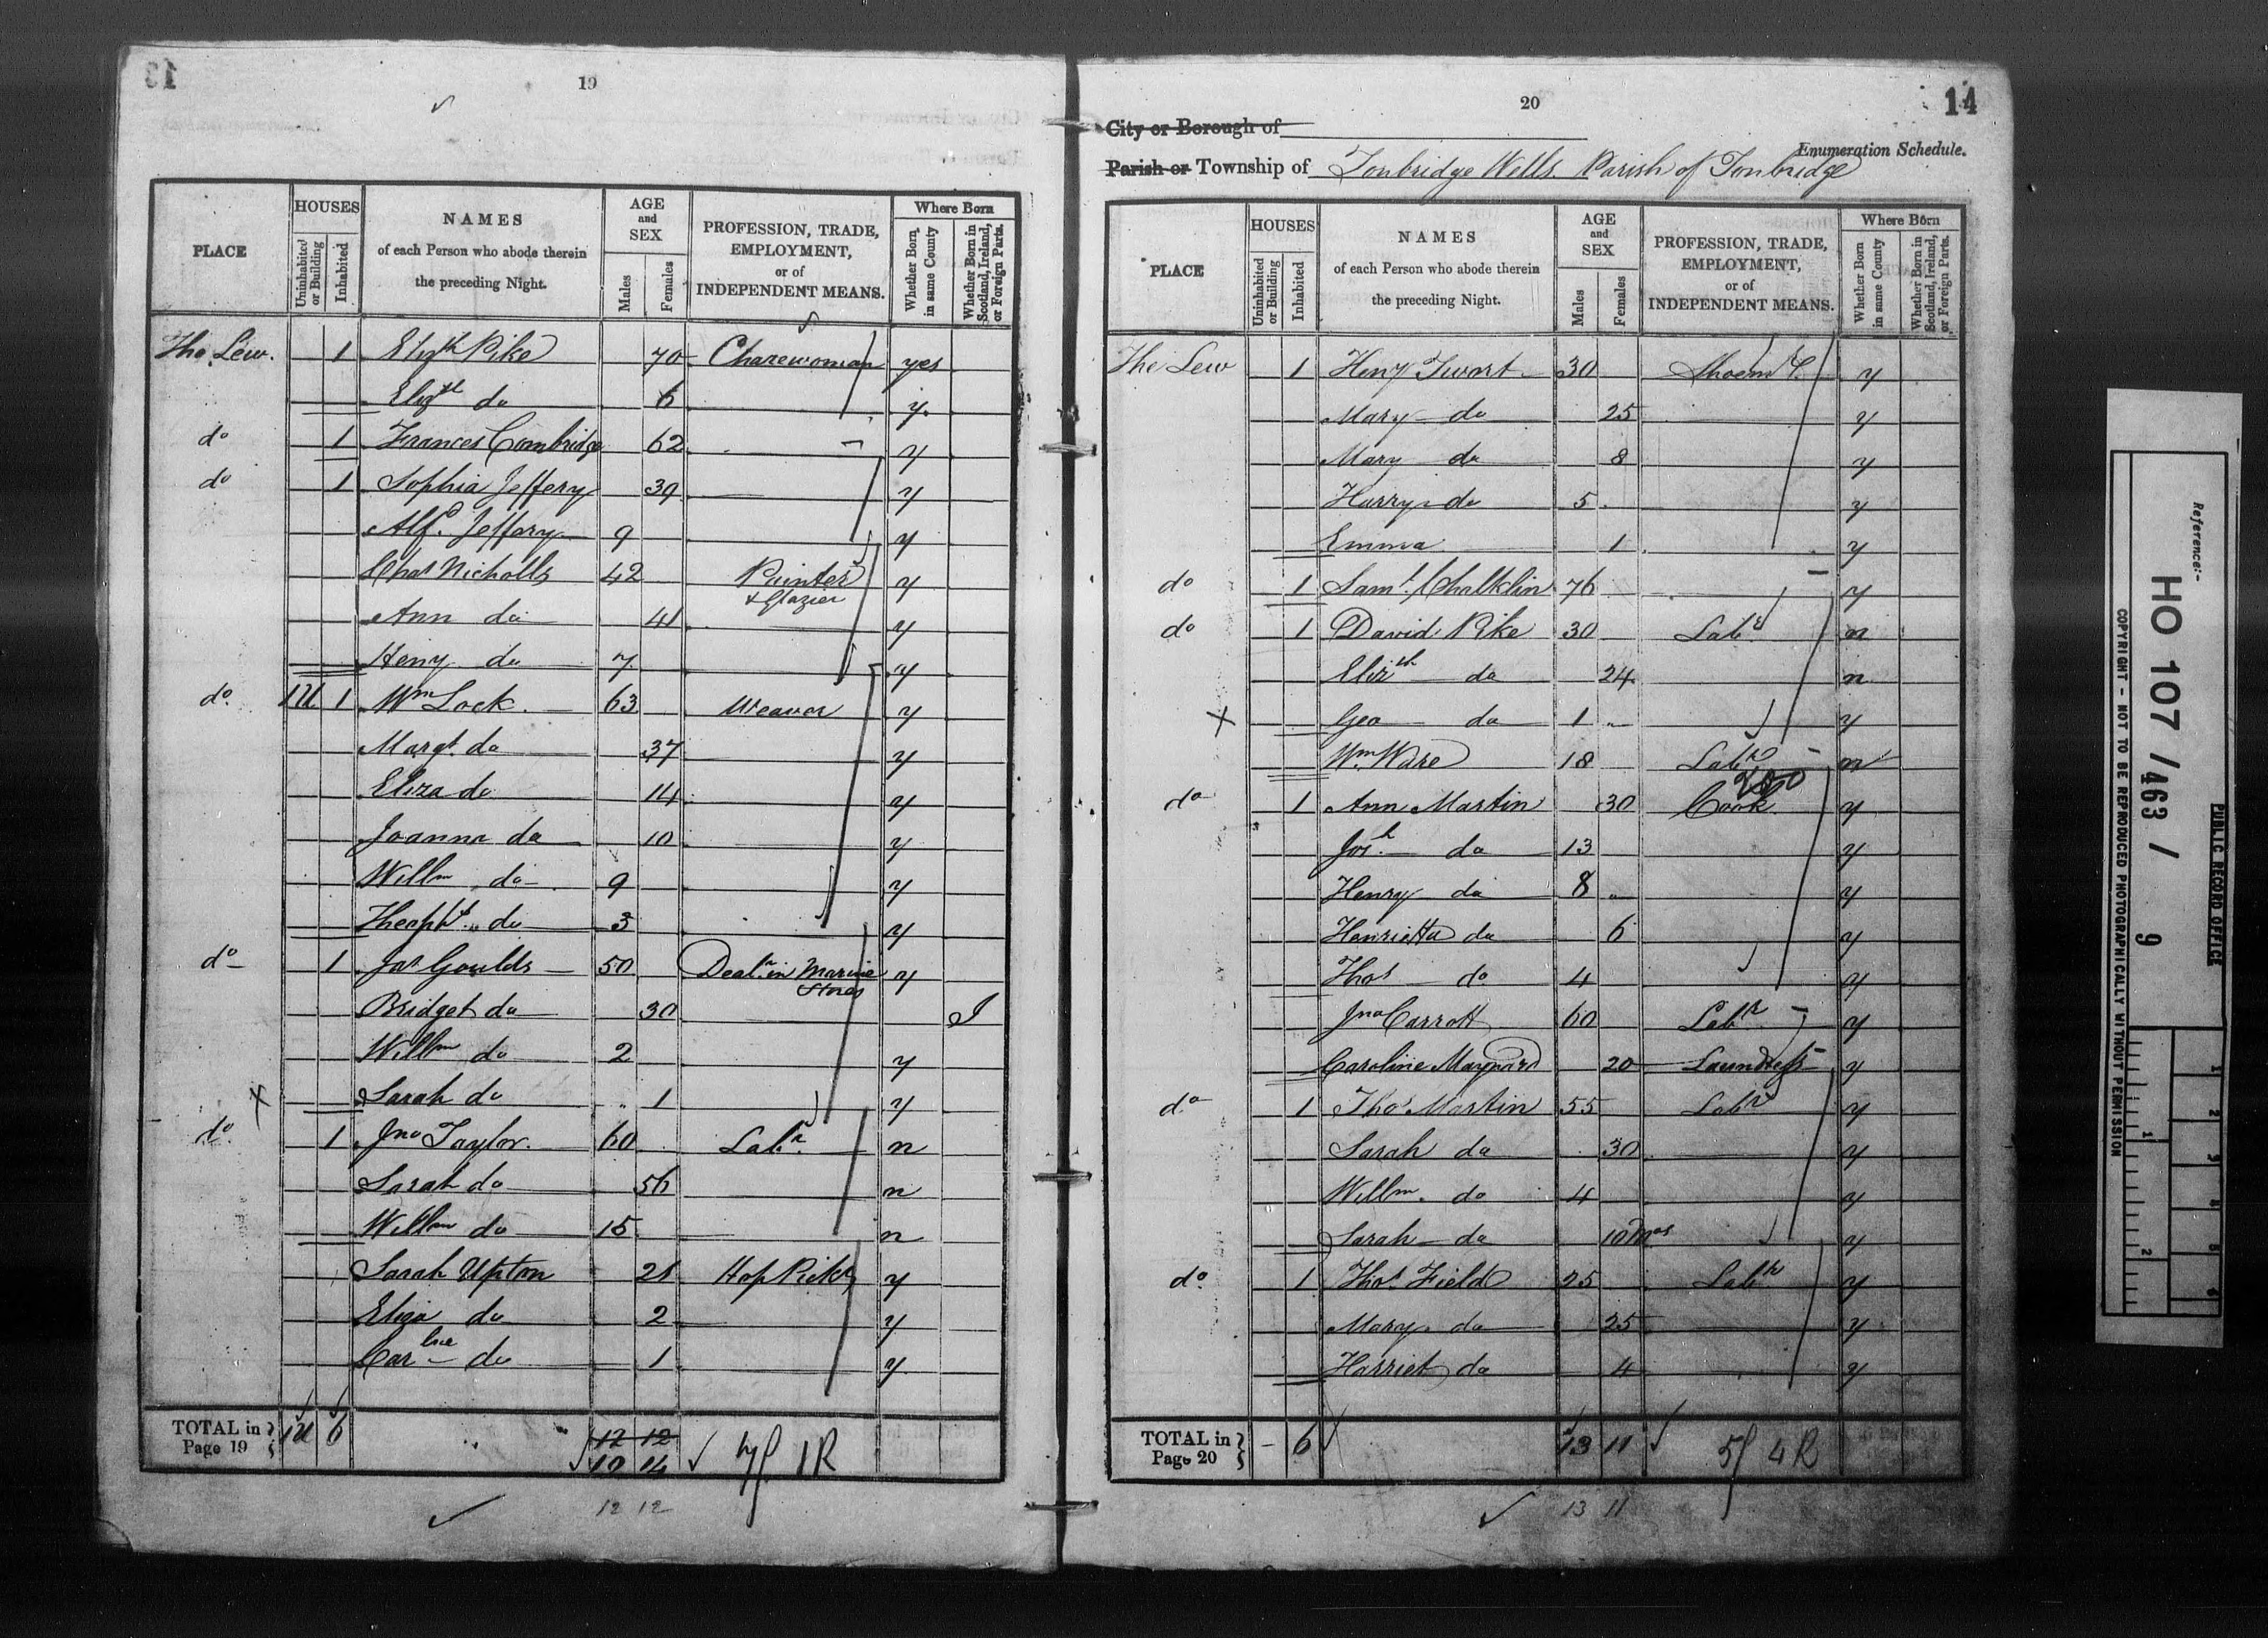 13
19
PLACE HOUSES Uninhabited or Building Inhabited NAMES of each Person who abode therein the preceding Night. AGE and SEX Males Females PROFESSION, TRADE, EMPLOYMENT, or of INDEPENDENT MEANS. Where Born Whether Born in same County Whether Born in Scotland, Ireland, or Foreign Parts.
The Lew. 1 Elizth Pike 70 Charewoman yes
Elizth do 6 y.
do 1 Frances Combridge 62 y
do 1 Sophia Jeffery 39 y
Alfd. Jeffery 9 y
Chas Nicholls 42 Painter y
& Glazier
Ann do 41 y
Heny do 7 y
do. 1U 1 Wm Lock. 63 Weaver y
Margt. do 37 y
Eliza do 14 y
Joanna do 10 y
Willm do 9 y
Theopht. do 3 y
do 1 Jas Goulds 50 Dealr in Marine y
Stores
Bridget do 30 I
Willm do 2 y
Sarah do 1 y
do. 1 Jno Taylor. 60 Labr. n
Sarah do 56 n
Willm do 15 n
Sarah Upton 21 Hop Pickr y
Eliza do 2 y
Carline do 1 y.
TOTAL in Page 19 1U 6 12 12 7f 1R
10 14
12 12
20
14
City or Borough of
Enumeration Schedule.
Parish or Township of Tonbridge Wells Parish of Tonbridge
PLACE HOUSES Uninhabited or Building Inhabited NAMES of each Person who abode therein the preceding Night. AGE and SEX Males Females PROFESSION, TRADE, EMPLOYMENT, or of INDEPENDENT MEANS. Where Born Whether Born in same County Whether Born in Scotland, Ireland, or Foreign Parts.
The Lew 1 Heny Twort 30 Shoem y
Mary do 25 y
Mary do 8 y
Harry do 5 y
Emma 1 y
do 1 Saml. Chalklin 76 y
do 1 David Pike 30 Labr n
Elizth do 24 n
Geo do 1 y
Wm. Ware 18 Labr n
do 1 Ann Martin 30 Cook y
Josh. do 13 y
Henry do 8 y
Henrietta do 6 y
Thos do 4 y
Jno Carrott 60 Labr. y
Caroline Maynard 20 Laundress y
do 1 Thos Martin 55 Labr y
Sarah do 30 y
Willm. do 4 y
Sarah do 10 Mos y
do. 1 Thos. Field 25 Labr y
Mary do 25 y
Harriet do 4 y
TOTAL in Page 20 - 6 13 11 5f 4R
13 11
PUBLIC RECORD OFFICE
Reference:-
HO 107 / 463 / 9
COPYRIGHT - NOT TO BE REPRODUCED PHOTOGRAPHICALLY WITHOUT PERMISSION
1 2 3 4 5 6
1 2